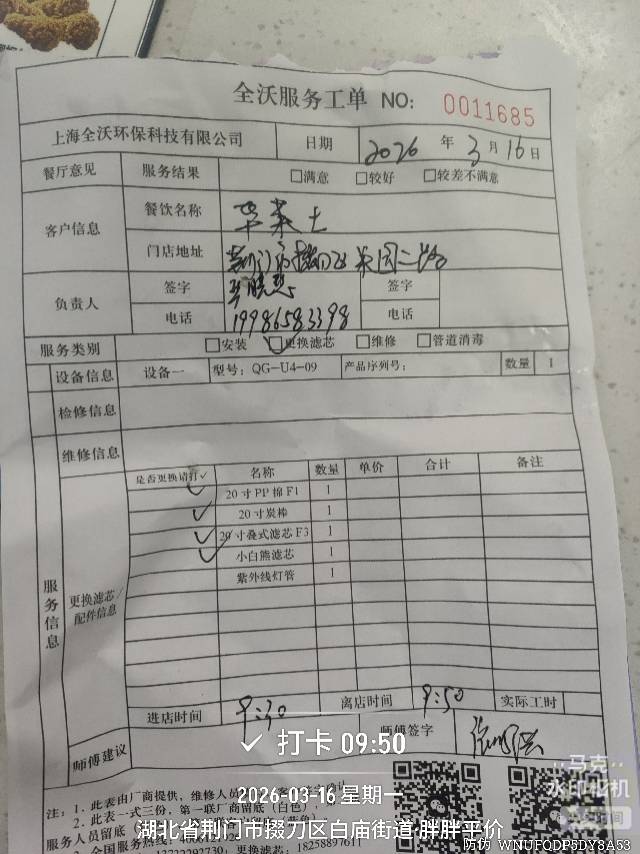 全沃服务工单 NO: 0011685
上海全沃环保科技有限公司 日期 2026 年 3 月 16 日
餐厅意见 服务结果 □满意 □较好 □较差不满意
客户信息 餐饮名称 华莱士
门店地址 荆门市掇刀区
负责人 签字 签字
电话 19986583398 电话
服务类别 □安装 □更换滤芯 □维修 □管道消毒
设备信息 设备一 型号: QG-U4-09 产品序列号: 数量 1
检修信息
维修信息
服务信息 更换滤芯/配件信息 是否更换请打✓ 名称 数量 单价 合计 备注
✓ 20寸PP棉F1 1
✓ 20寸炭棒 1
✓ 20寸叠式滤芯F3 1
✓ 小白熊滤芯 1
紫外线灯管 1
进店时间 9:30 离店时间 9:50 实际工时
师傅建议 师傅签字
✓ 打卡 09:50
2026-03-16 星期一
湖北省荆门市掇刀区白庙街道·胖胖平价
马克
水印相机
注: 1. 此表由厂商提供, 维修人员
2. 此表一式三份, 第一联厂商留底（白色）
服务人员留底
全国服务热线:
18258897611
防伪 WNUFQDP5DY8A53